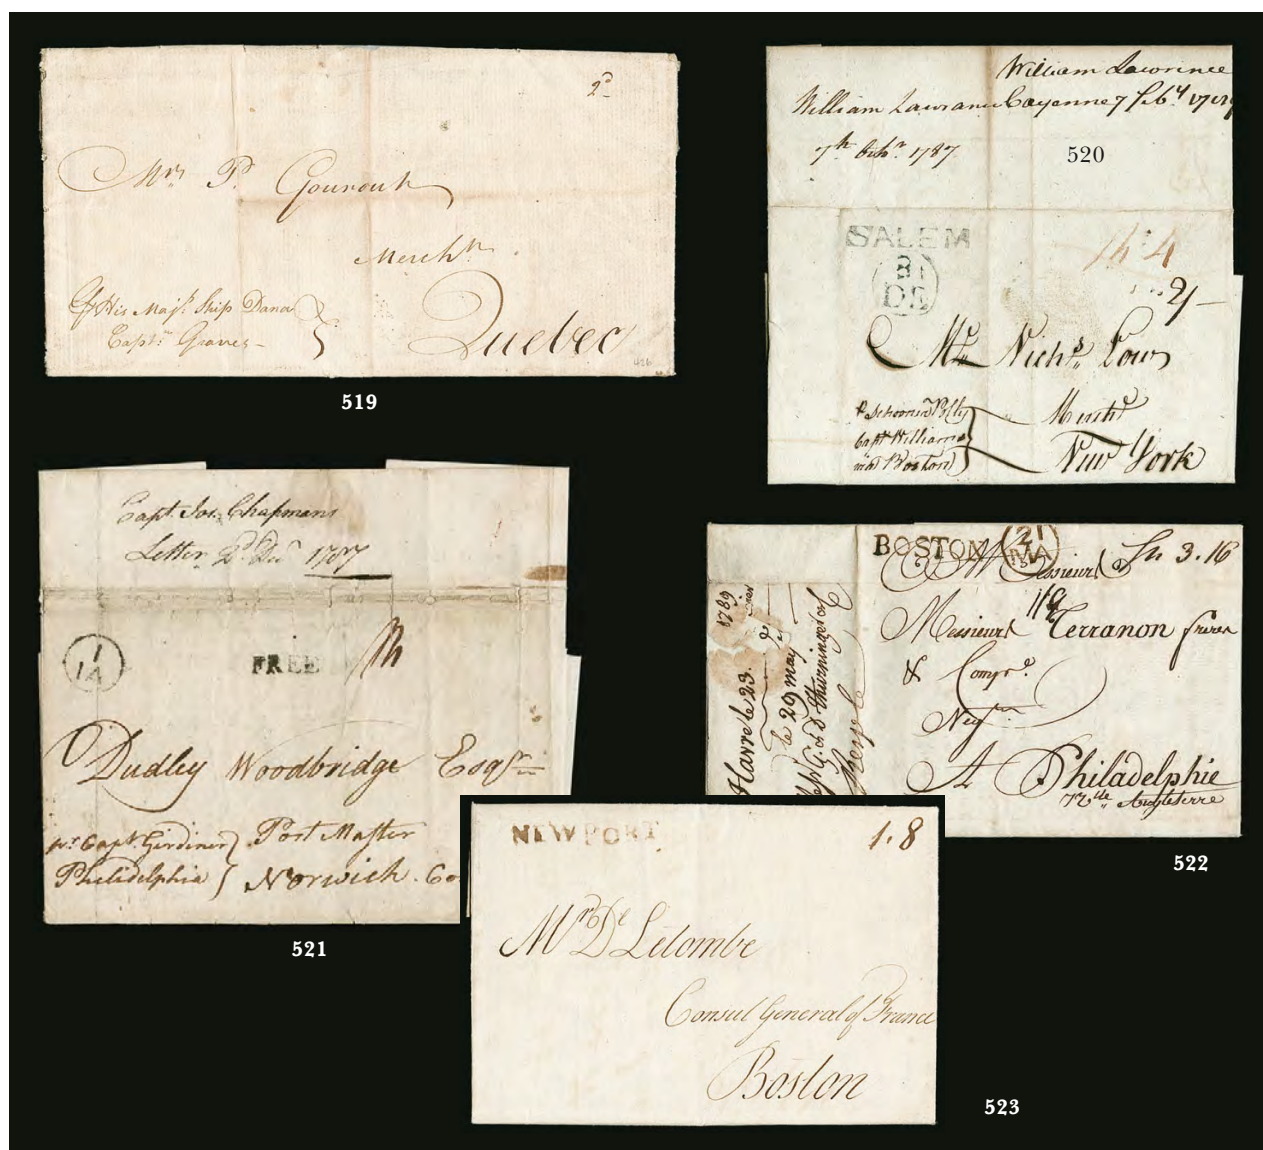 2d
Mr. Pr. Gourouk
Merchtt.
Pr His Majts. Ship Dana
Captn. Graves
Quebec
426
519
William Lawrence
William Lawrance Cayenne 7 feby. 1787
7th Octr. 1787
520
SALEM
3
DE
14.4
2/-
Mr. Nichs. Low
Mercht
New York
P Schooner Polly
Capt Williams
via Boston
Capt. Jos. Chapmans
Letter 2d. Dec 1787
1
IA
FREE
Dudley Woodbridge Esqr.
pr. Capt. Girdiner
Philidelphia
Post Master
Norwich. Co
521
BOSTON
21
MA
Sh 3.16
Messieurs
Messieurs Terranon freres
& Compe.
Negts.
A Philadelphie
Angleterre
Havre le 23.
1789
le 29 may
522
NEWPORT
1.8
Mr. De Létombe
Consul General of France
Boston
523